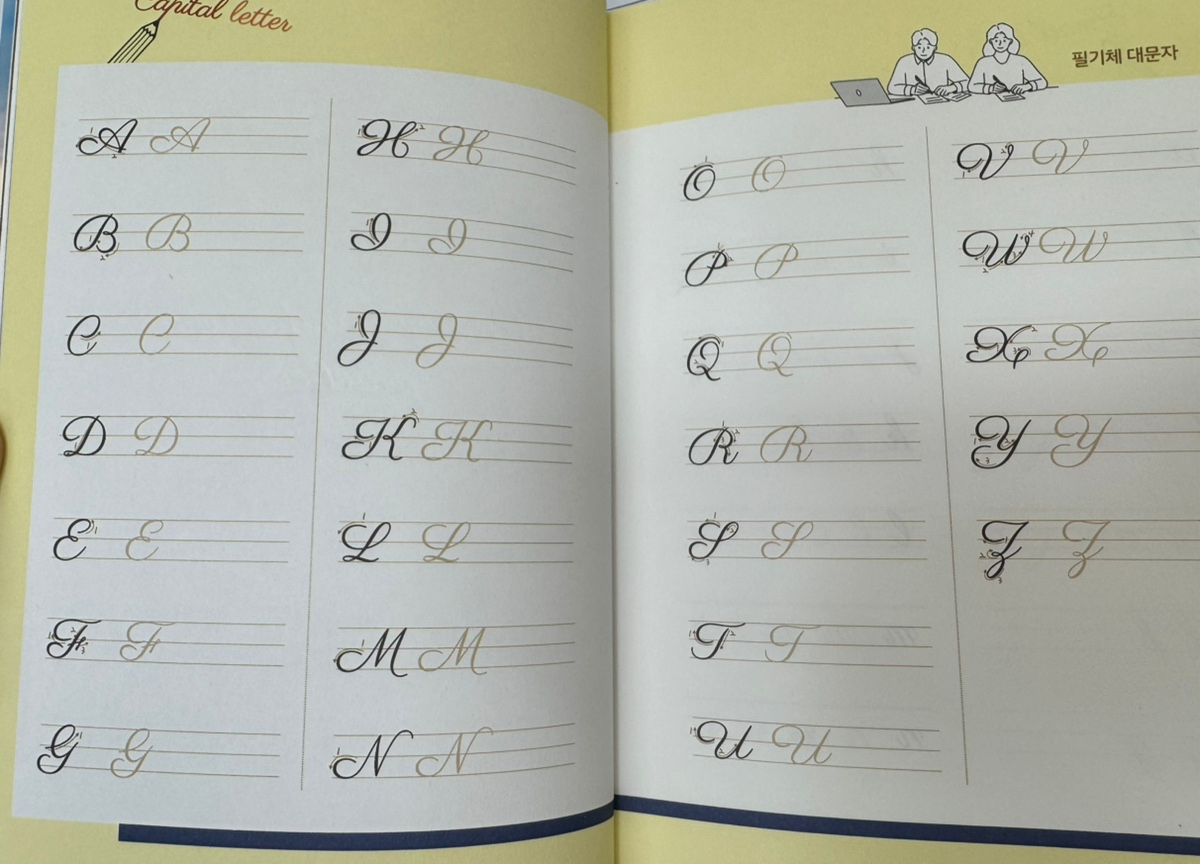 Capital letter
A A
B B
C C
D D
E E
F F
G G
H H
I I
J J
K K
L L
M M
N N
필기체 대문자
O O
P P
Q Q
R R
S S
T T
U U
V V
W W
X X
Y Y
Z Z